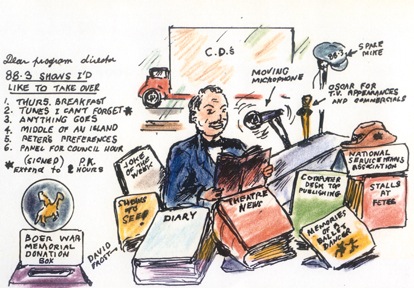 Dear program director
88.3 SHOWS I'D
LIKE TO TAKE OVER
1. THURS. BREAKFAST
2. TUNES I CAN'T FORGET*
3. ANYTHING GOES
4. MIDDLE OF AN ISLAND
5. PETER'S PREFERENCES
6. PANEL FOR COUNCIL HOUR
(SIGNED) P.K.
* Extend to 2 HOURS
C.D.s
MOVING
MICROPHONE
88.3
SPARE
MIKE
OSCAR FOR
T.V. APPEARANCES
AND COMMERCIALS
JOKE
OF THE
WEEK
SHOWS TO
SEED
DAVID
FROST
DIARY
THEATRE
NEWS
COMPUTER
DESK TOP
PUBLISHING
MEMORIES
OF A
BALLET
DANCER
NATIONAL
SERVICE MENS
ASSOCIATION
STALLS
AT
FETES
BOER WAR
MEMORIAL
DONATION
BOX